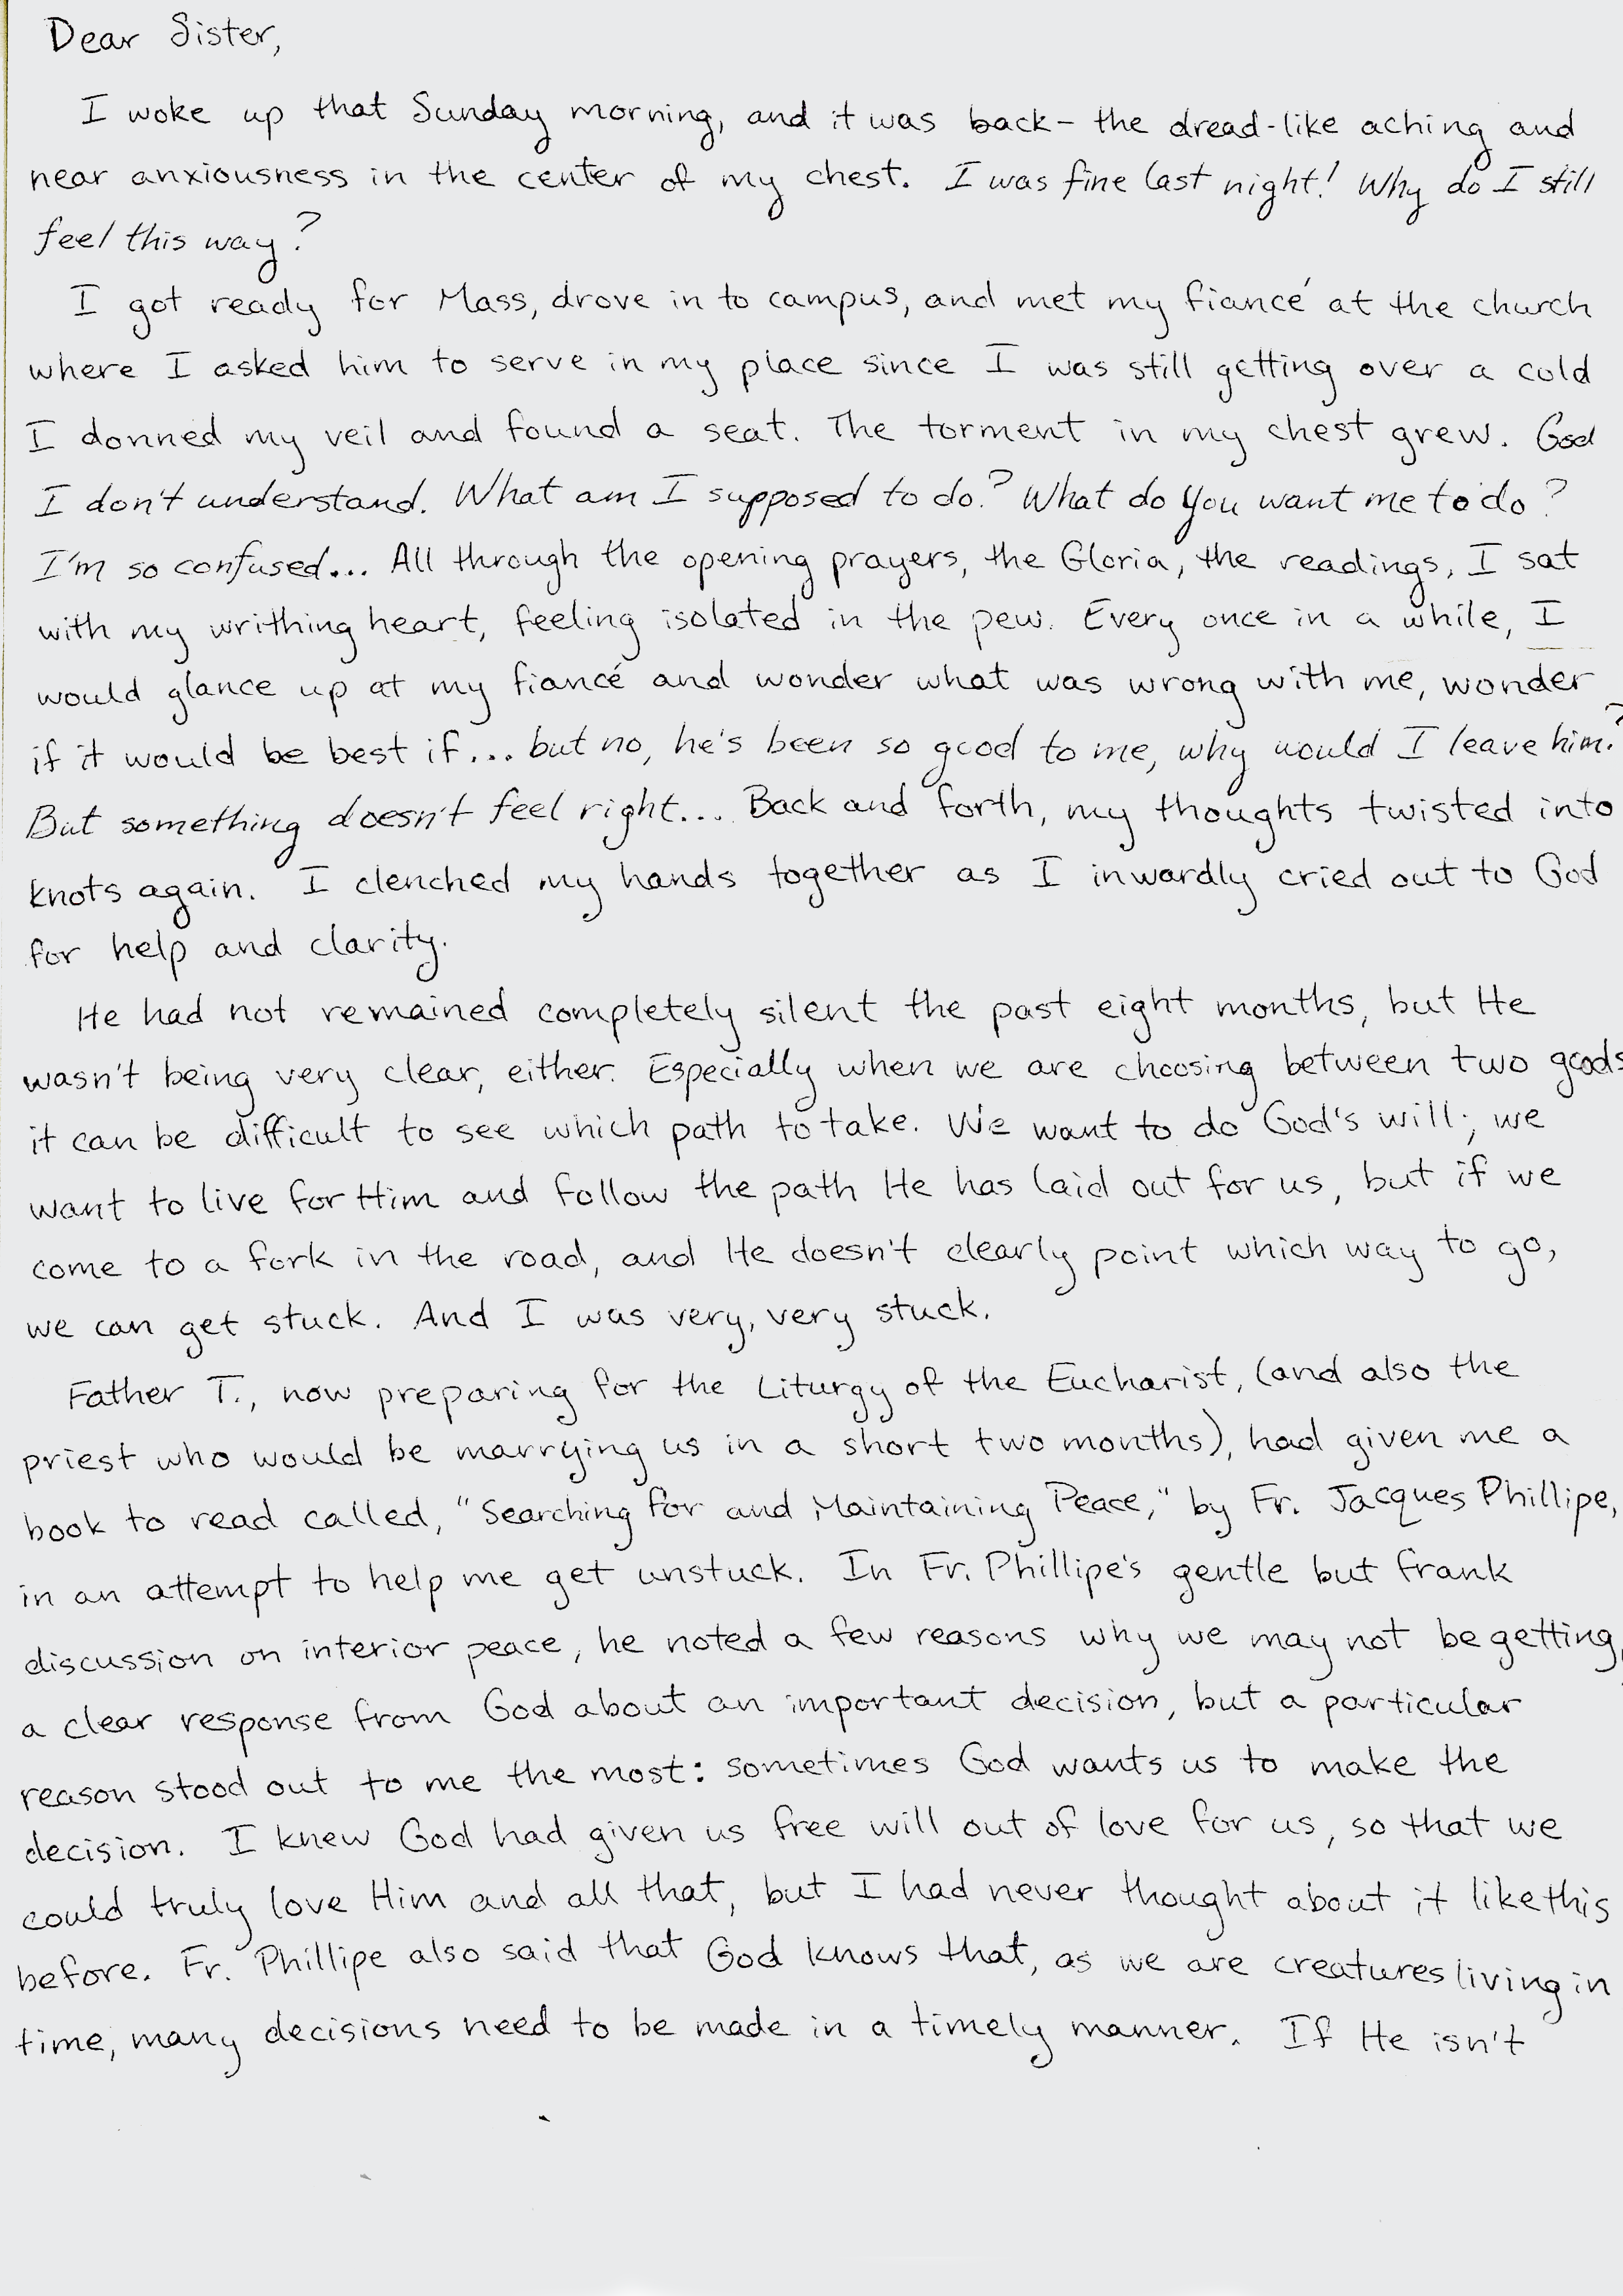 Dear Sister,
I woke up that Sunday morning, and it was back - the dread-like aching and
near anxiousness in the center of my chest. I was fine last night! Why do I still
feel this way?
I got ready for Mass, drove in to campus, and met my fiancé at the church
where I asked him to serve in my place since I was still getting over a cold
I donned my veil and found a seat. The torment in my chest grew. God
I don't understand. What am I supposed to do? What do You want me to do?
I'm so confused... All through the opening prayers, the Gloria, the readings, I sat
with my writhing heart, feeling isolated in the pew. Every once in a while, I
would glance up at my fiancé and wonder what was wrong with me, wonder
if it would be best if... but no, he's been so good to me, why would I leave him?
But something doesn't feel right... Back and forth, my thoughts twisted into
knots again. I clenched my hands together as I inwardly cried out to God
for help and clarity.
He had not remained completely silent the past eight months, but He
wasn't being very clear, either. Especially when we are choosing between two goods
it can be difficult to see which path to take. We want to do God's will; we
want to live for Him and follow the path He has laid out for us, but if we
come to a fork in the road, and He doesn't clearly point which way to go,
we can get stuck. And I was very, very stuck.
Father T., now preparing for the Liturgy of the Eucharist, (and also the
priest who would be marrying us in a short two months), had given me a
book to read called, "Searching for and Maintaining Peace," by Fr. Jacques Phillipe,
in an attempt to help me get unstuck. In Fr. Phillipe's gentle but frank
discussion on interior peace, he noted a few reasons why we may not be getting
a clear response from God about an important decision, but a particular
reason stood out to me the most: sometimes God wants us to make the
decision. I knew God had given us free will out of love for us, so that we
could truly love Him and all that, but I had never thought about it like this
before. Fr. Phillipe also said that God knows that, as we are creatures living in
time, many decisions need to be made in a timely manner. If He isn't